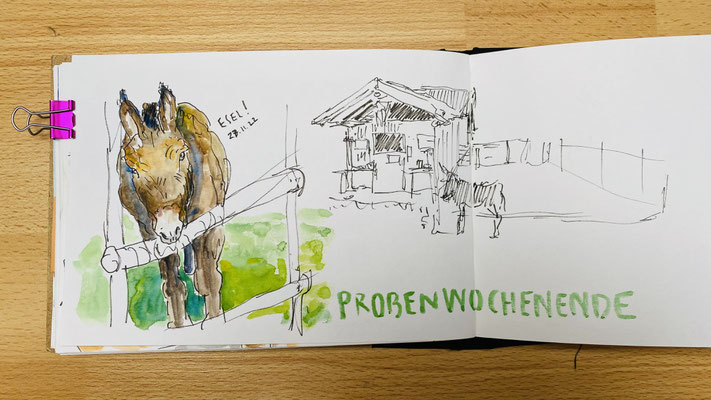 ESEL!
27.11.22
PROBENWOCHENENDE